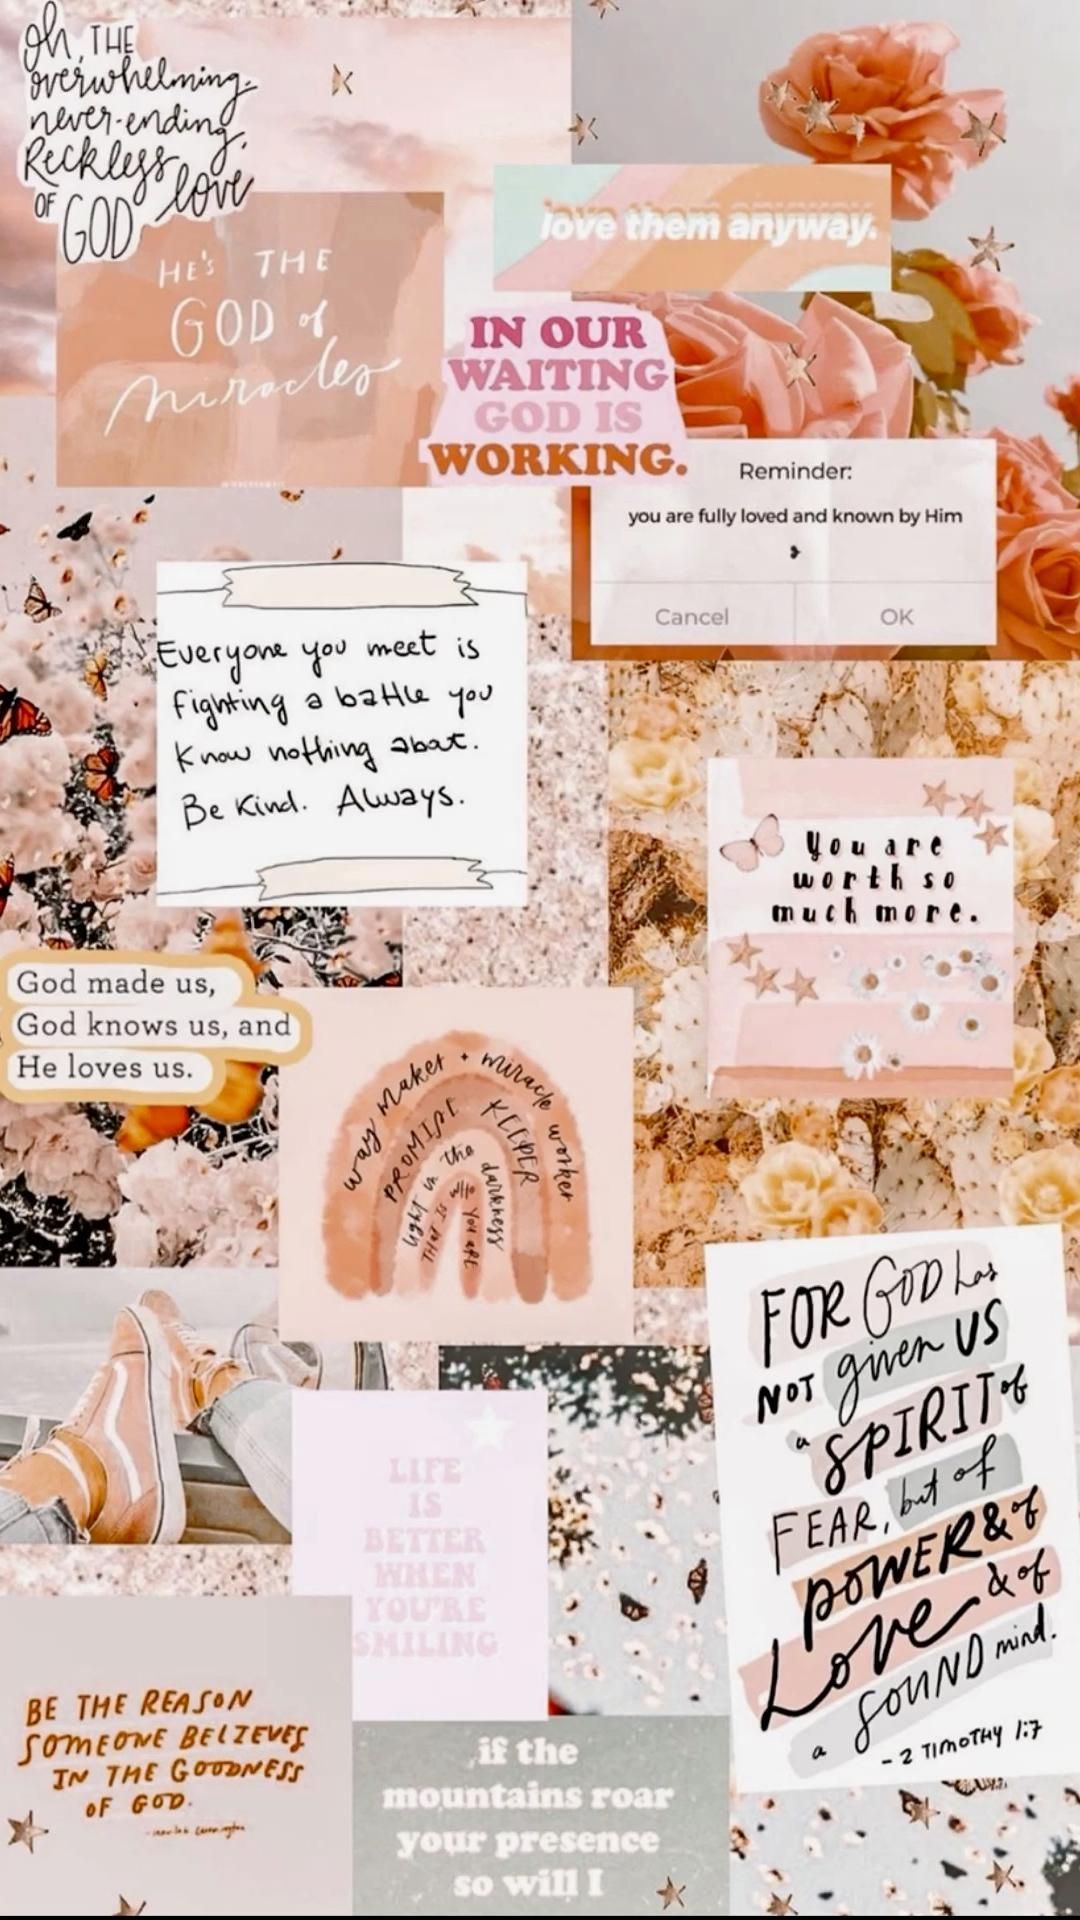 Oh, THE
overwhelming,
never-ending,
Reckless
OF GOD love
HE'S THE
GOD of
miracles
love them anyway.
IN OUR
WAITING
GOD IS
WORKING.
Reminder:
you are fully loved and known by Him
Cancel OK
Everyone you meet is
fighting a battle you
know nothing abat.
Be Kind. Always.
You are
worth so
much more.
God made us,
God knows us, and
He loves us.
way maker + miracle worker
PROMISE KEEPER
light in the darkness
THAT IS who YOU ARE
FOR GOD has
NOT given US
a SPIRIT of
FEAR, but of
POWER & of
Love & of
a SOUND mind.
- 2 TIMOTHY 1:7
LIFE
IS
BETTER
WHEN
YOU'RE
SMILING
BE THE REASON
SOMEONE BELIEVES
IN THE GOODNESS
OF GOD.
if the
mountains roar
your presence
so will I